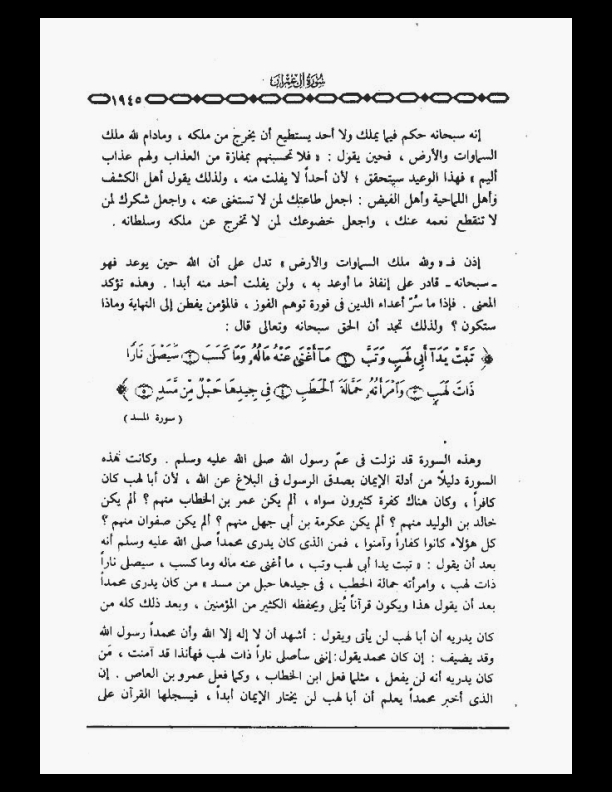 سورة آل عمران
١٩٤٥
إنه سبحانه حكم فيما يملك ولا أحد يستطيع أن يخرج من ملكه ، ومادام لله ملك
السماوات والأرض ، فحين يقول : « فلا تحسبنهم بمفازة من العذاب ولهم عذاب
أليم » فهذا الوعيد سيتحقق ؛ لأن أحداً لا يفلت منه ، ولذلك يقول أهل الكشف
وأهل اللماحية وأهل الفيض : اجعل طاعتك لمن لا تستغنى عنه ، واجعل شكرك لمن
لا تنقطع نعمه عنك ، واجعل خضوعك لمن لا تخرج عن ملكه وسلطانه .
إذن فـ « ولله ملك السماوات والأرض » تدل على أن الله حين يوعد فهو
- سبحانه - قادر على إنفاذ ما أوعد به ، ولن يفلت أحد منه أبدا . وهذه تؤكد
المعنى . فإذا ما سُرّ أعداء الدين فى فورة توهم الفوز ، فالمؤمن يفطن إلى النهاية وماذا
ستكون ؟ ولذلك تجد أن الحق سبحانه وتعالى قال :
﴿ تَبَّتْ يَدَا أَبِي لَهَبٍ وَتَبَّ ۝١ مَا أَغْنَى عَنْهُ مَالُهُ وَمَا كَسَبَ ۝٢ سَيَصْلَى نَارًا
ذَاتَ لَهَبٍ ۝٣ وَامْرَأَتُهُ حَمَّالَةَ الْحَطَبِ ۝٤ فِي جِيدِهَا حَبْلٌ مِّن مَّسَدٍ ۝٥ ﴾
( سورة المسد )
وهذه السورة قد نزلت فى عمّ رسول الله صلى الله عليه وسلم . وكانت هذه
السورة دليلًا من أدلة الإيمان بصدق الرسول فى البلاغ عن الله ، لأن أبا لهب كان
كافراً ، وكان هناك كفرة كثيرون سواه ، ألم يكن عمر بن الخطاب منهم ؟ ألم يكن
خالد بن الوليد منهم ؟ ألم يكن عكرمة بن أبى جهل منهم ؟ ألم يكن صفوان منهم ؟
كل هؤلاء كانوا كفاراً وآمنوا ، فمن الذى كان يدرى محمداً صلى الله عليه وسلم أنه
بعد أن يقول : « تبت يدا أبى لهب وتب ، ما أغنى عنه ماله وما كسب ، سيصلى ناراً
ذات لهب ، وامرأته حمالة الحطب ، فى جيدها حبل من مسد » من كان يدرى محمداً
بعد أن يقول هذا ويكون قرآناً يُتلى ويحفظه الكثير من المؤمنين ، وبعد ذلك كله من
كان يدريه أن أبا لهب لن يأتى ويقول : أشهد أن لا إله إلا الله وأن محمداً رسول الله
وقد يضيف : إن كان محمد يقول : إننى سأصلى ناراً ذات لهب فهأنذا قد آمنت ، مَن
كان يدريه أنه لن يفعل ، مثلما فعل ابن الخطاب ، وكما فعل عمرو بن العاص . إن
الذى أخبر محمداً يعلم أن أبا لهب لن يختار الإيمان أبداً ، فيسجلها القرآن على